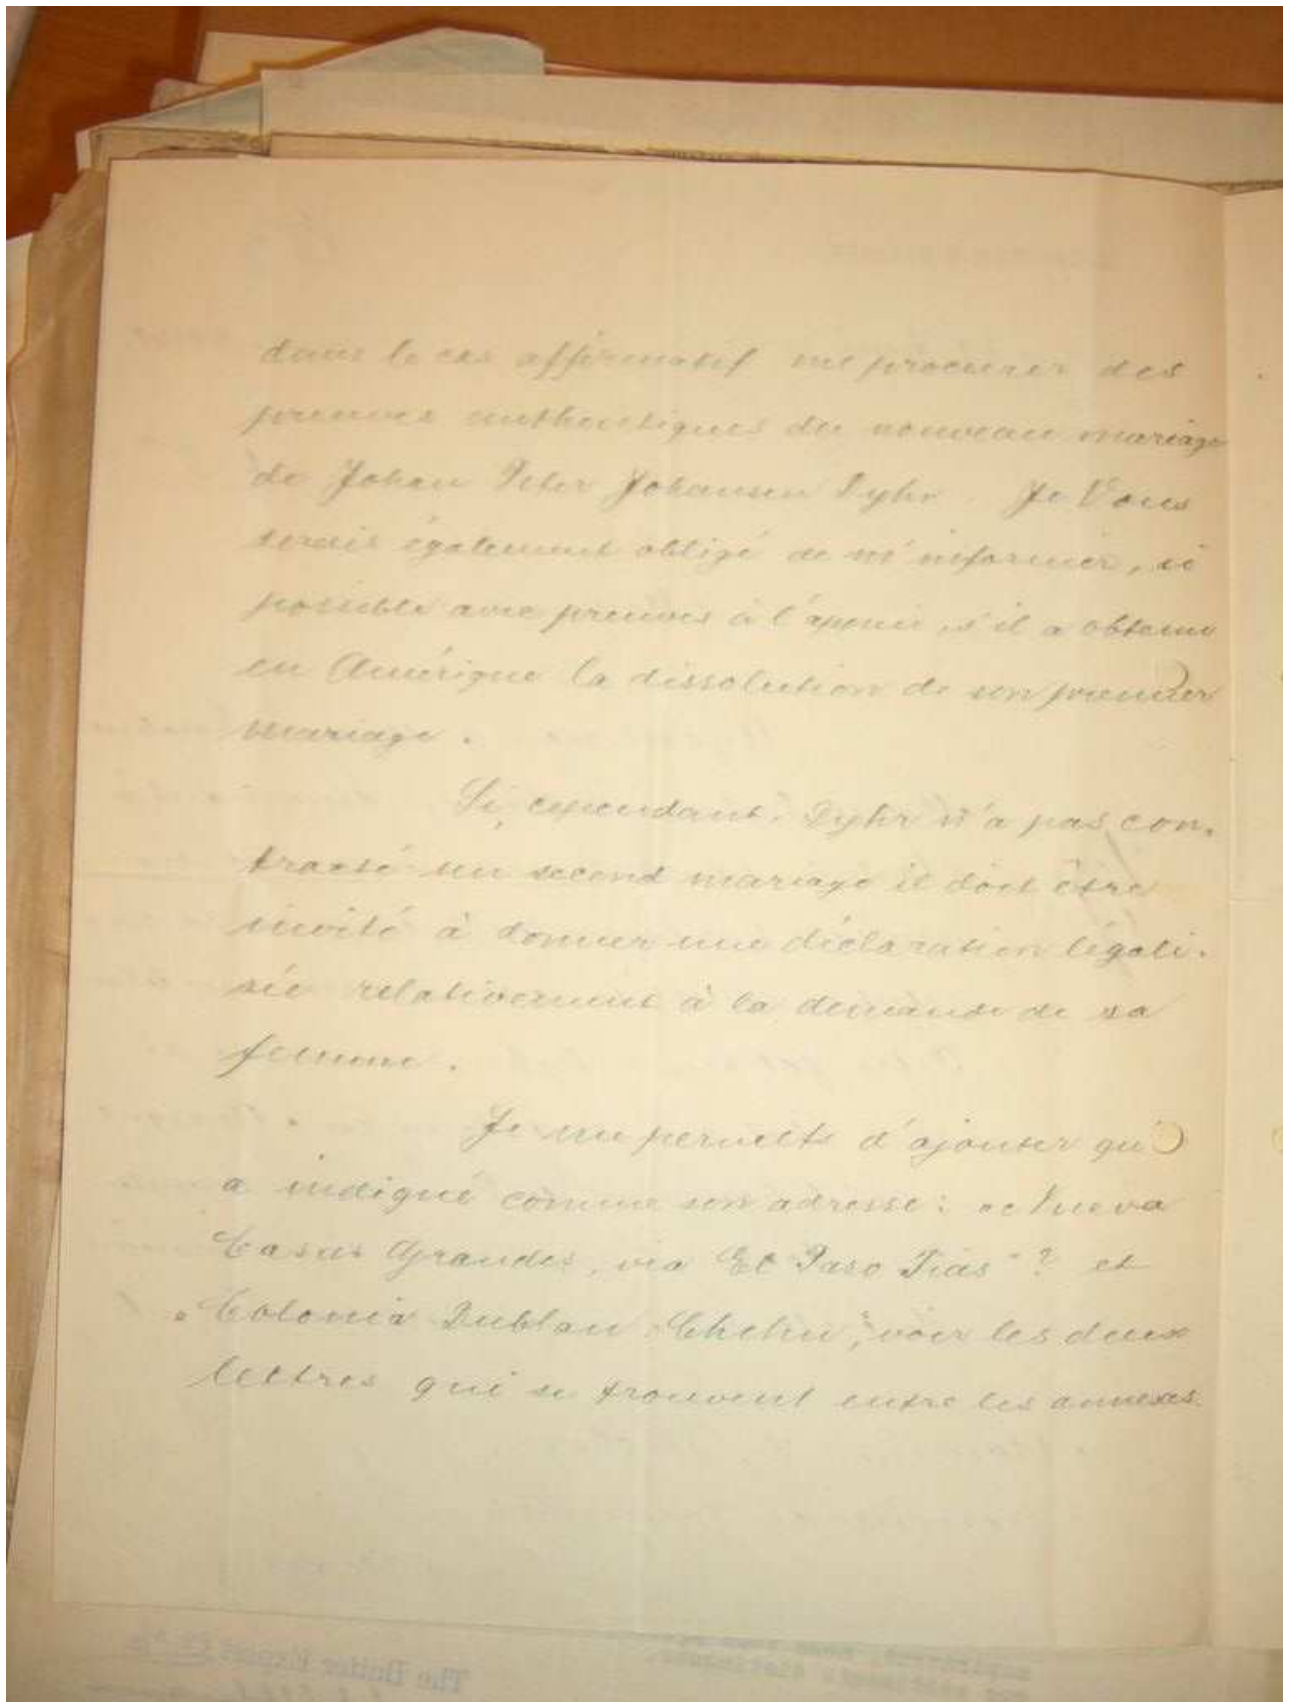 dans le cas affirmatif me procurer des
preuves authentiques du nouveau mariage
de Johan Peter Johansen Dyhr. Je Vous
serais également obligé de m'informer, si
possible avec preuves à l'appui, s'il a obtenu
en Amérique la dissolution de son premier
mariage.
Si, cependant, Dyhr n'a pas con-
tracté un second mariage il doit être
invité à donner une déclaration légali-
sée relativement à la demande de sa
femme.
Je me permets d'ajouter qu'
a indiqué comme son adresse: Nueva
Casas Grandes, via El Paso Tias"? et
"Colonia Dublan, Chehu", voir les deux
lettres qui se trouvent entre les annexes.
The Butter Export